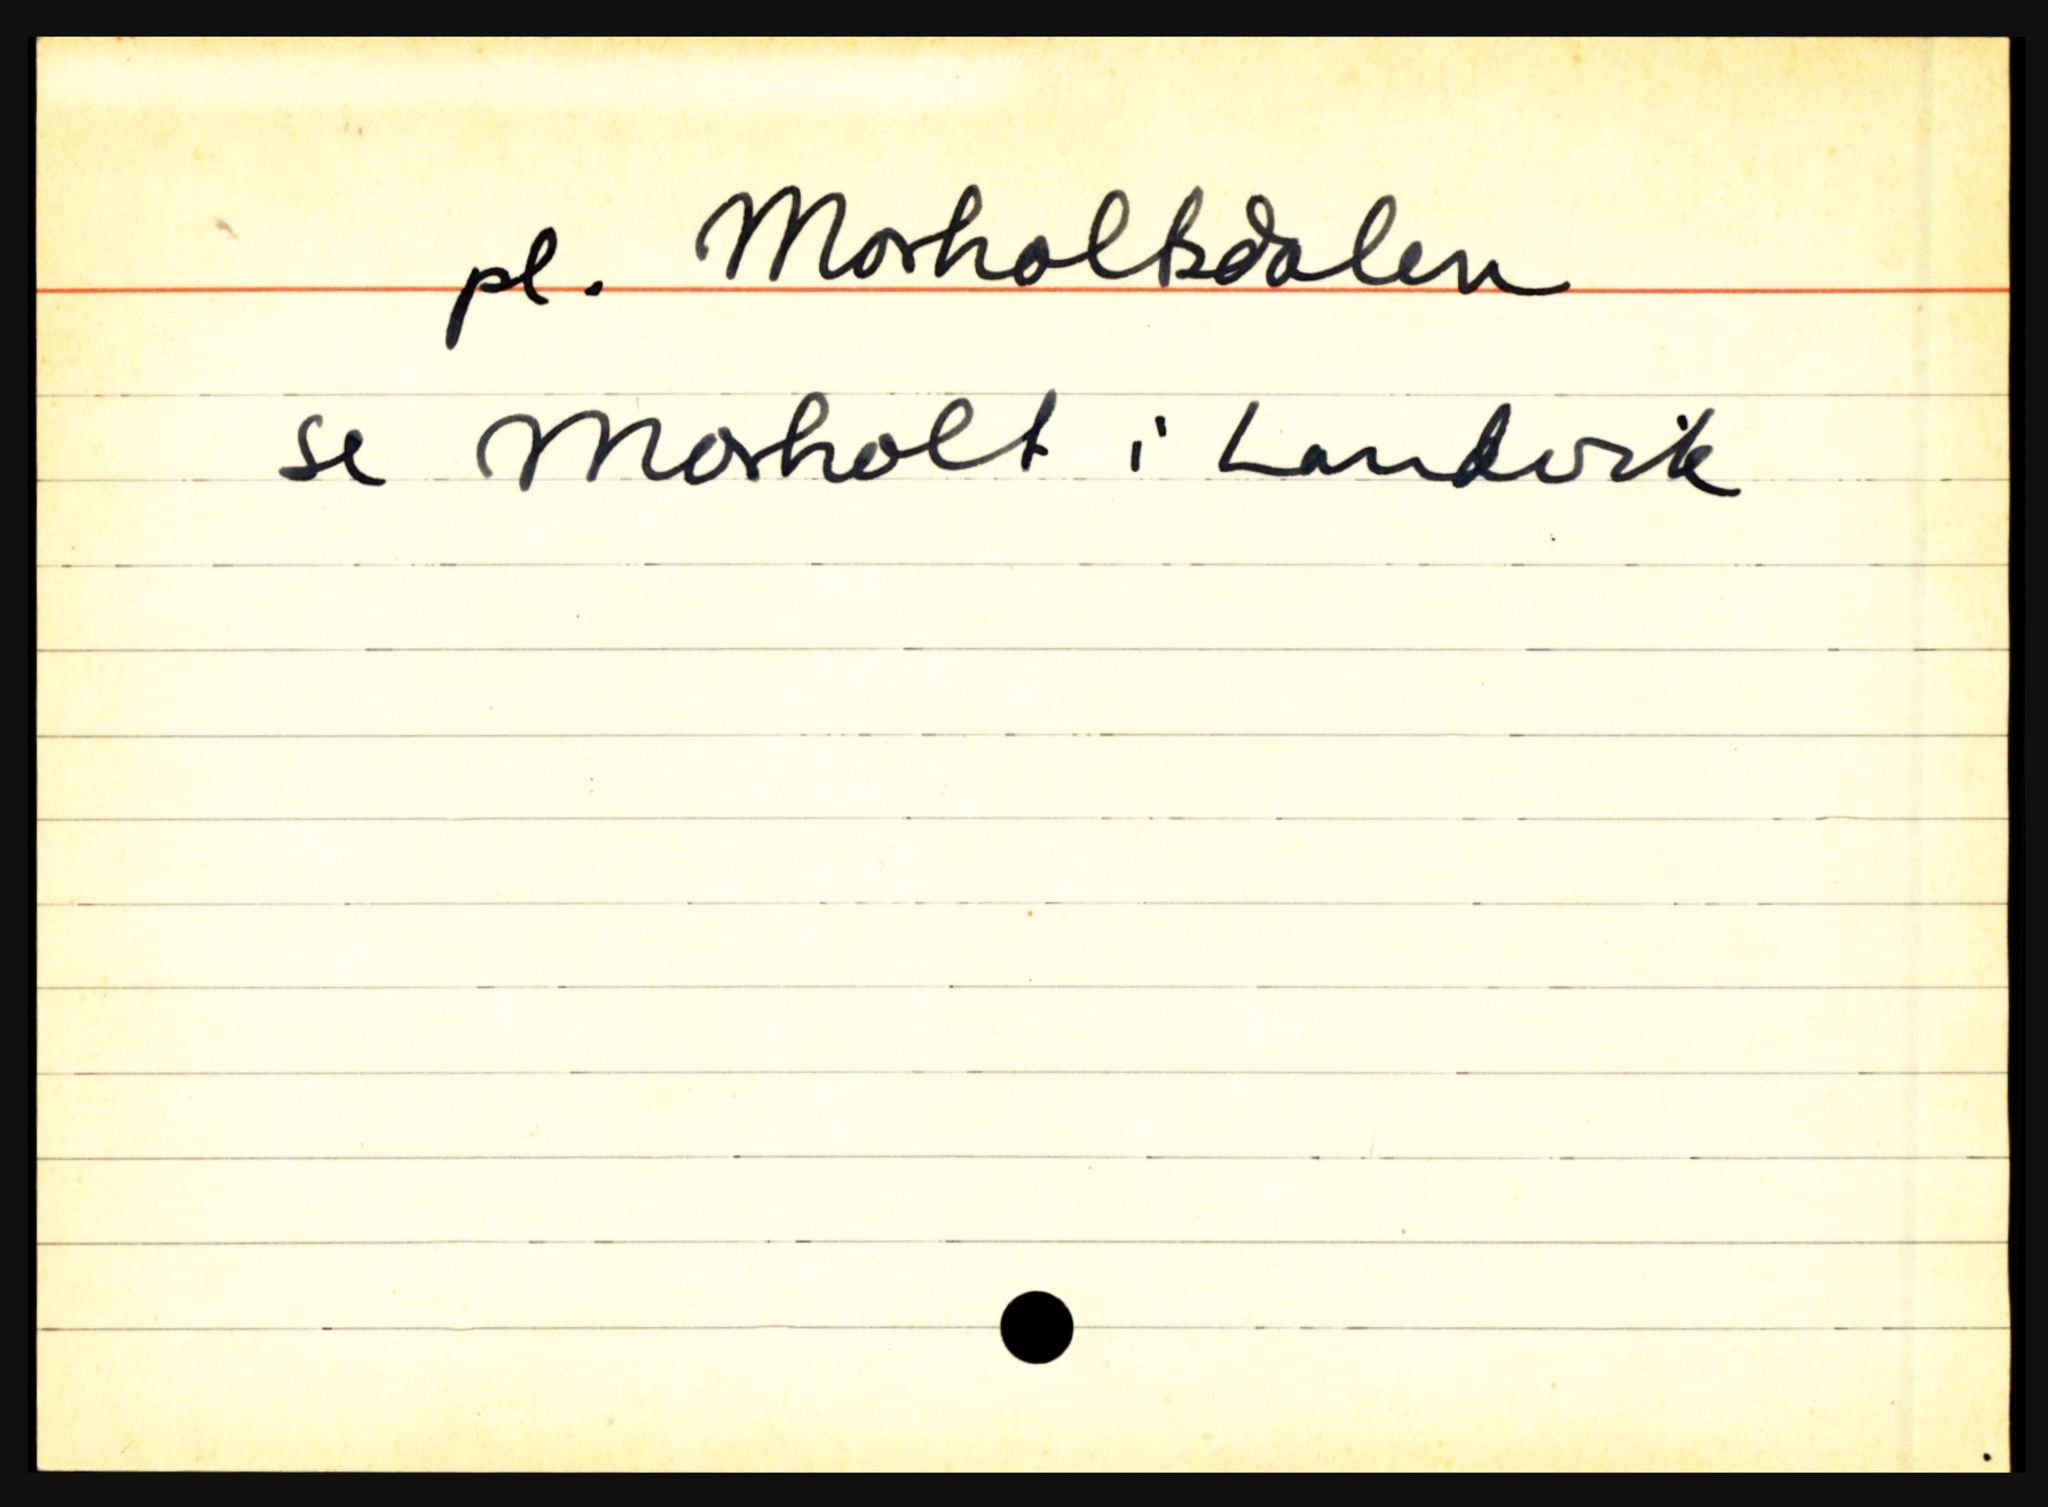 pl. Morholtsdalen
se Morholt i Landvik